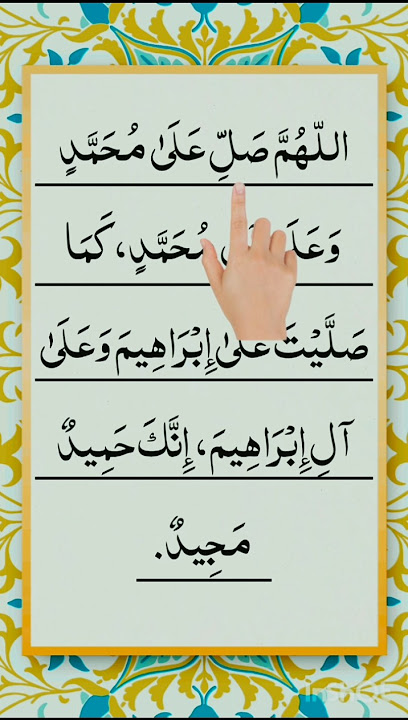 اللّٰهُمَّ صَلِّ عَلَىٰ مُحَمَّدٍ
مُحَمَّدٍ، كَمَا
صَلَّيْتَ عَلَىٰ إِبْرَاهِيمَ وَعَلَىٰ
آلِ إِبْرَاهِيمَ، إِنَّكَ حَمِيدٌ
مَجِيدٌ.